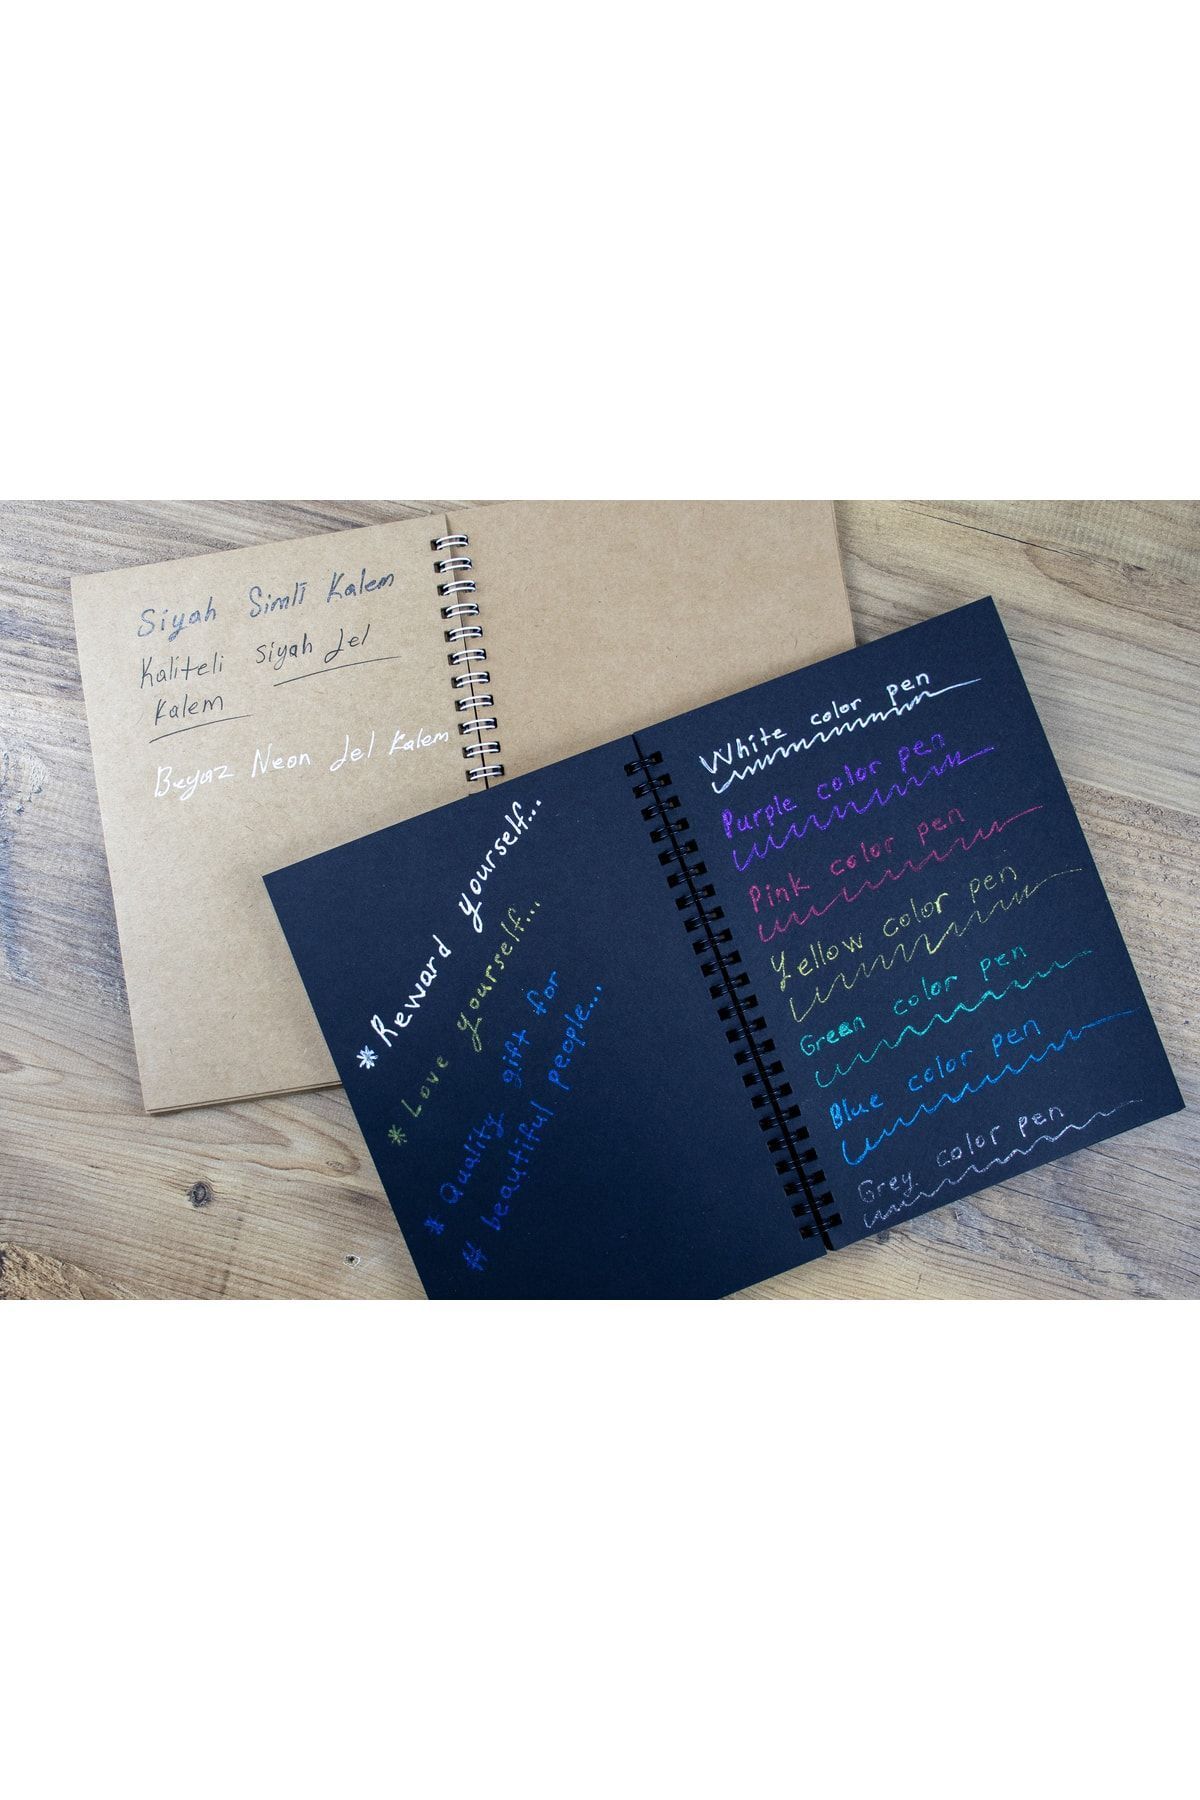 Siyah Simli Kalem
Kaliteli siyah Jel
Kalem
Beyaz Neon Jel Kalem
* Reward yourself...
* Love yourself...
* Quality gift for
# beautiful people...
White color pen
Purple color pen
Pink color pen
Yellow color pen
Green color pen
Blue color pen
Grey color pen